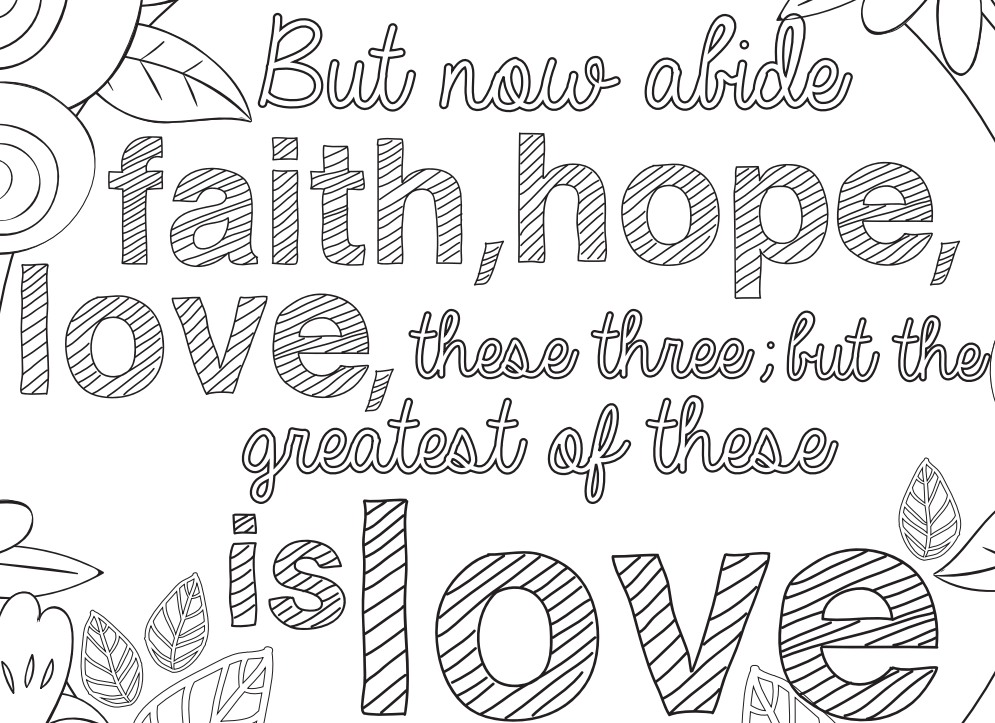 But now abide
faith, hope,
love, these three; but the
greatest of these
is love